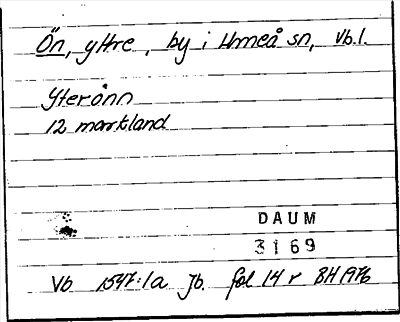 Ön, yttre, by i Umeå sn, Vb.l.
Yterönn
12 markland
DAUM
3169
Vb 1547:1a Jb. fol 14 r BH 1976